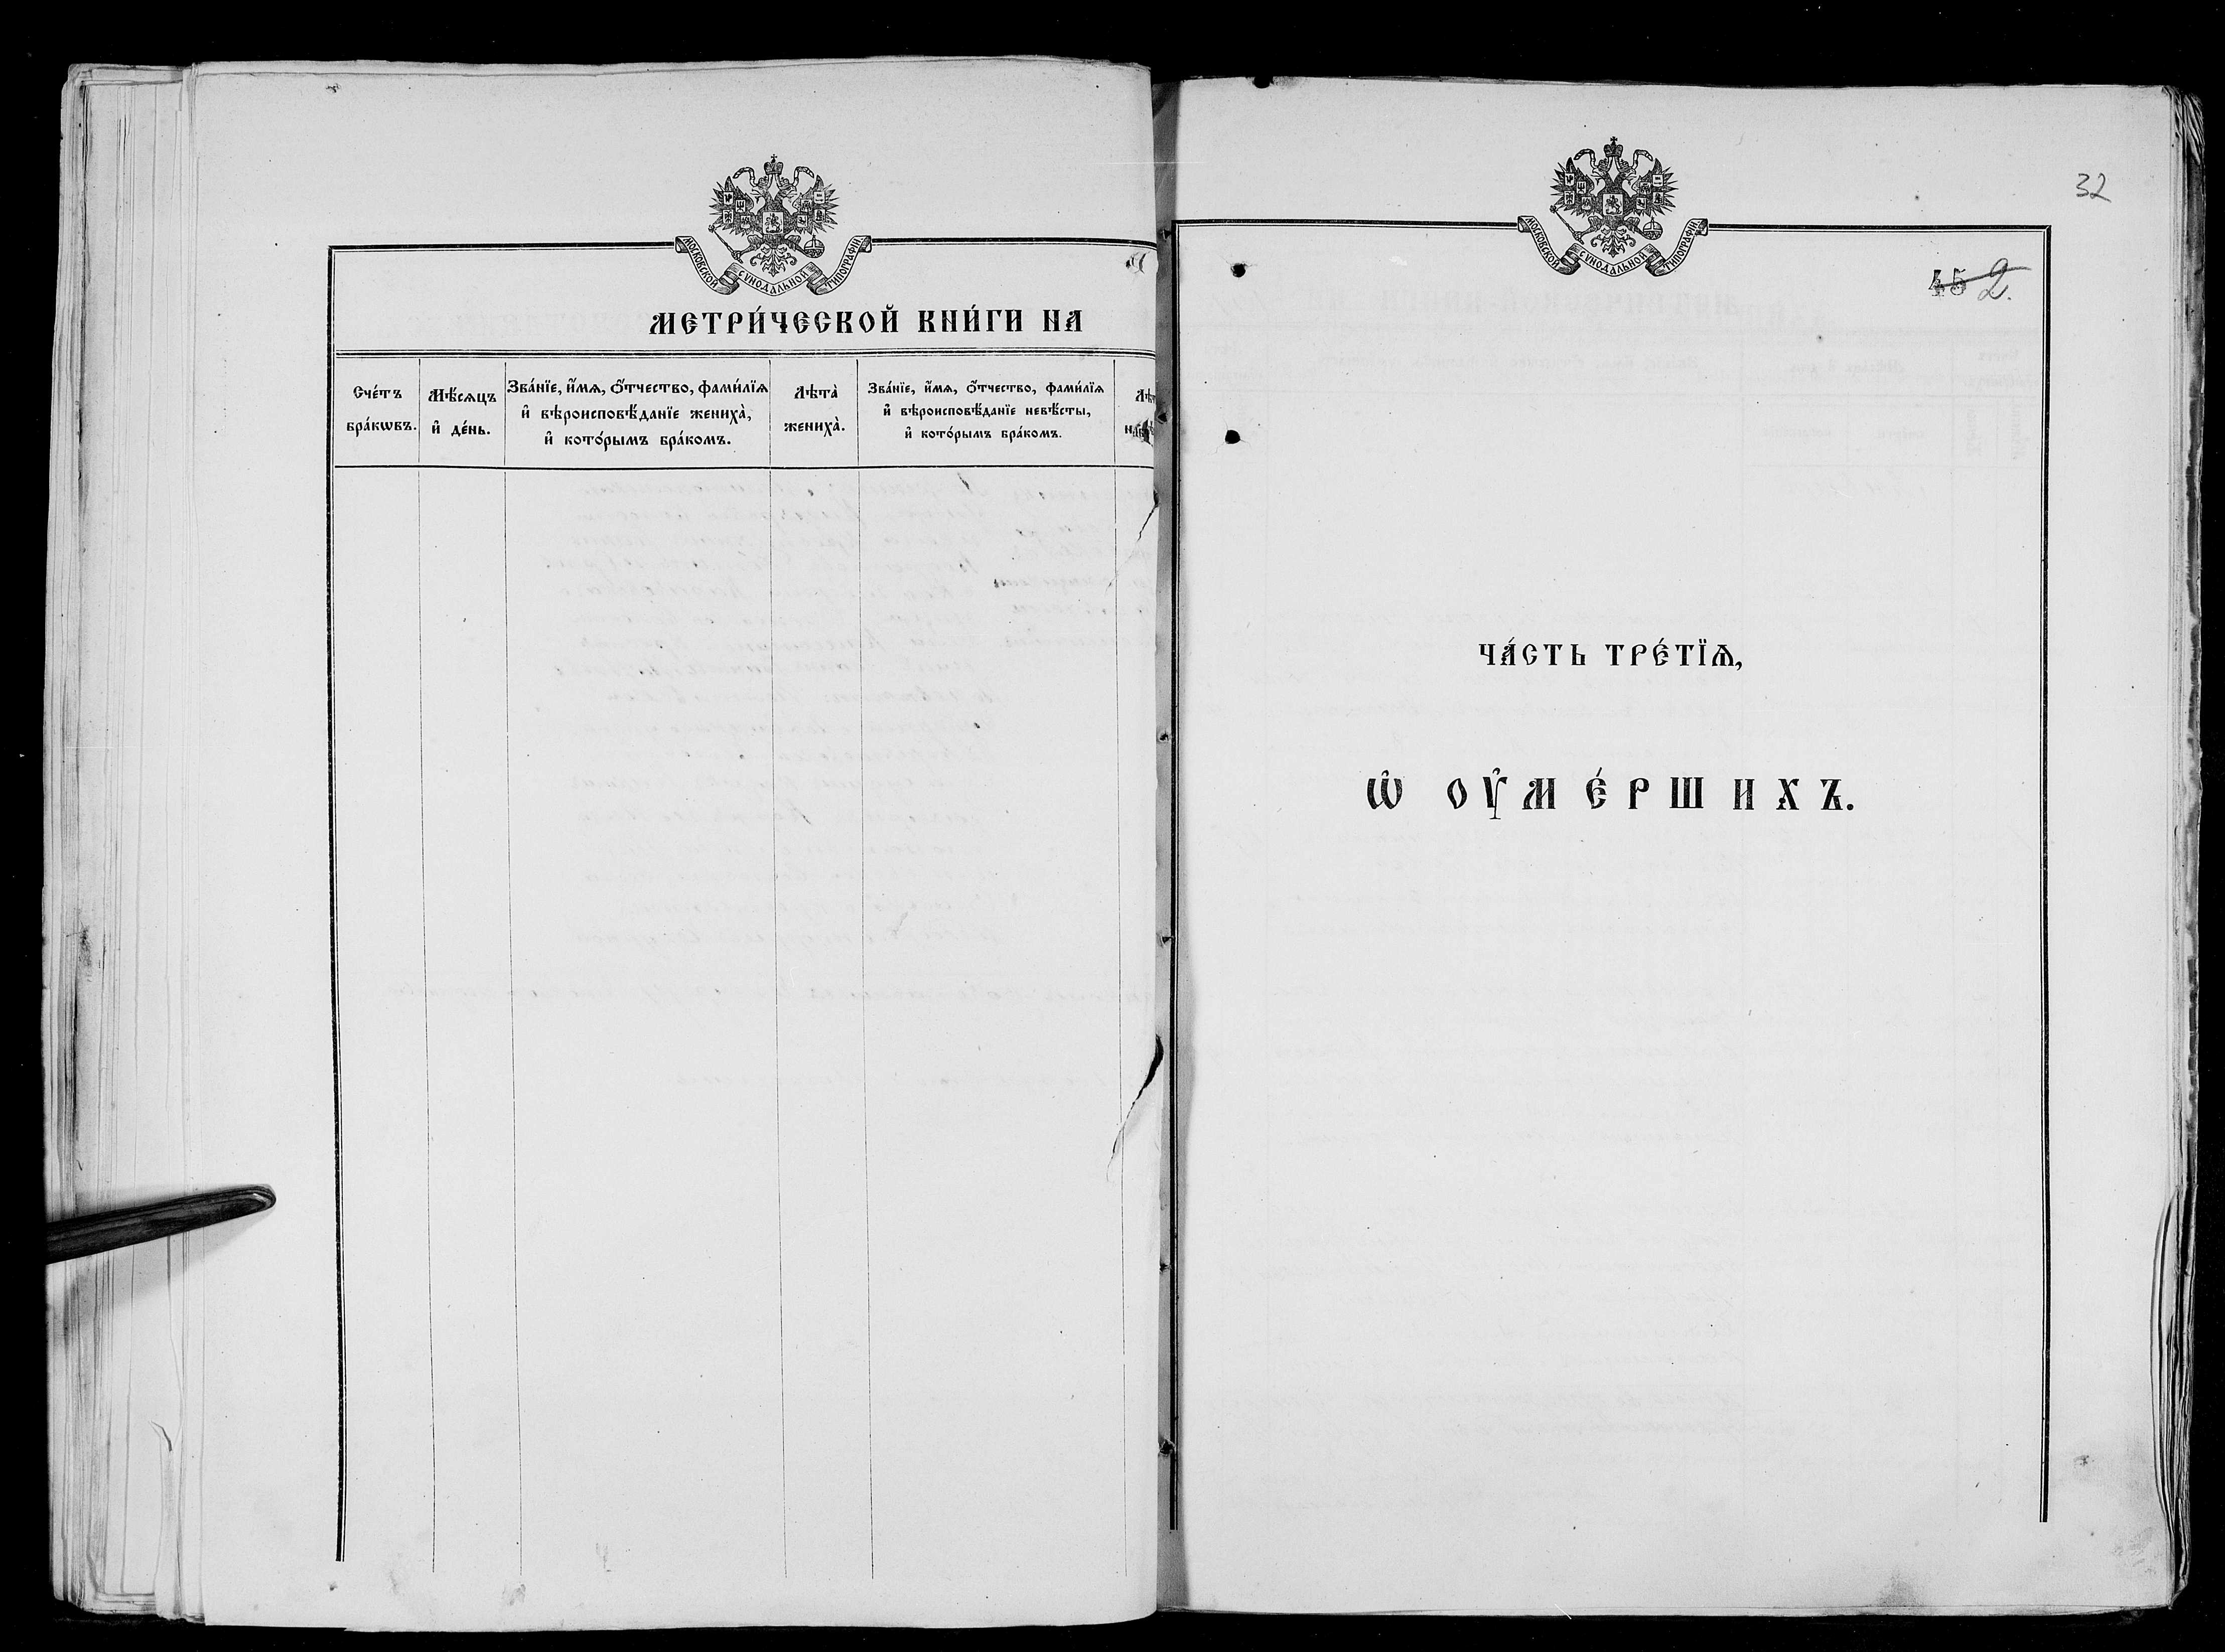 МОСКОВСКОЙ СѴНОДАЛЬНОЙ ТИПОГРАФІИ.
МЕТРИ́ЧЕСКОЙ КНИ́ГИ НА
Сче́тъ бра́кѡвъ.
Мѣ́сѧцъ и҆ де́нь.
Зва́нїе, и҆́мѧ, ѻ҆́тчество, фами́лїѧ
и҆ вѣроисповѣ́данїе жениха̀,
и҆ кото́рымъ бра́комъ.
Лѣта̀ жениха̀.
Зва́нїе, и҆́мѧ, ѻ҆́тчество, фами́лїѧ
и҆ вѣроисповѣ́данїе невѣ́сты,
и҆ кото́рымъ бра́комъ.
32
МОСКОВСКОЙ СѴНОДАЛЬНОЙ ТИПОГРАФІИ.
45 2.
ЧА́СТЬ ТРЕ́ТЇѦ,
Ѡ҆ ОУ҆МЕ́РШИХЪ.